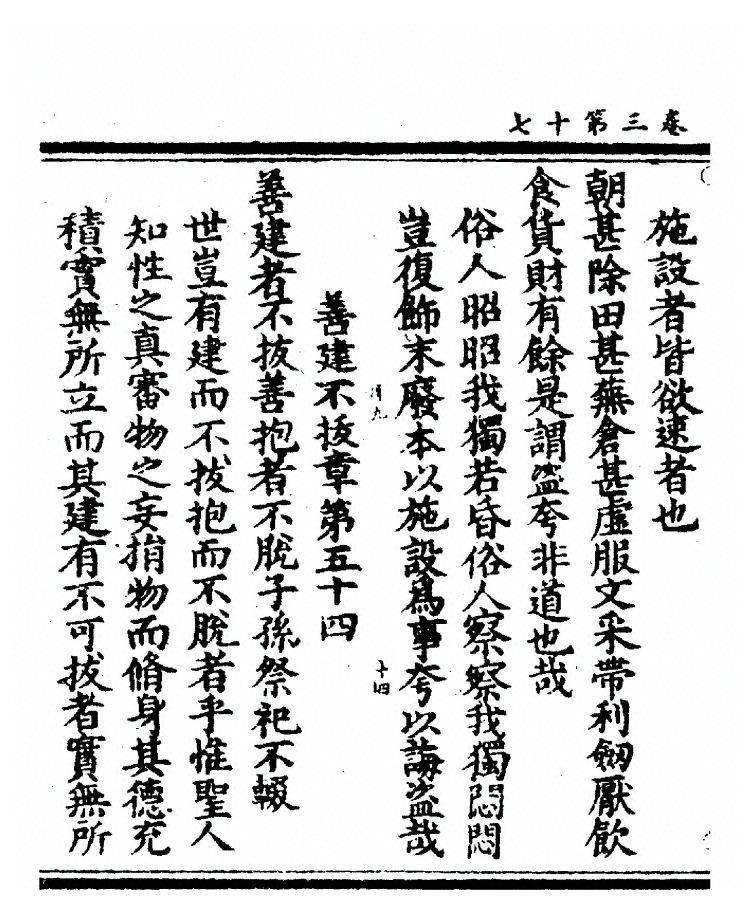 卷三第十七
施設者皆欲速者也
朝甚除田甚蕪倉甚虛服文采帶利劒厭飲
食貨財有餘是謂盜夸非道也哉
俗人昭昭我獨若昏俗人察察我獨悶悶
豈復飾末廢本以施設爲事夸以誨盜哉
十四
善建不拔章第五十四
善建者不拔善抱者不脫子孫祭祀不輟
世豈有建而不拔抱而不脫者乎惟聖人
知性之真審物之妄捐物而脩身其德充
積實無所立而其建有不可拔者實無所